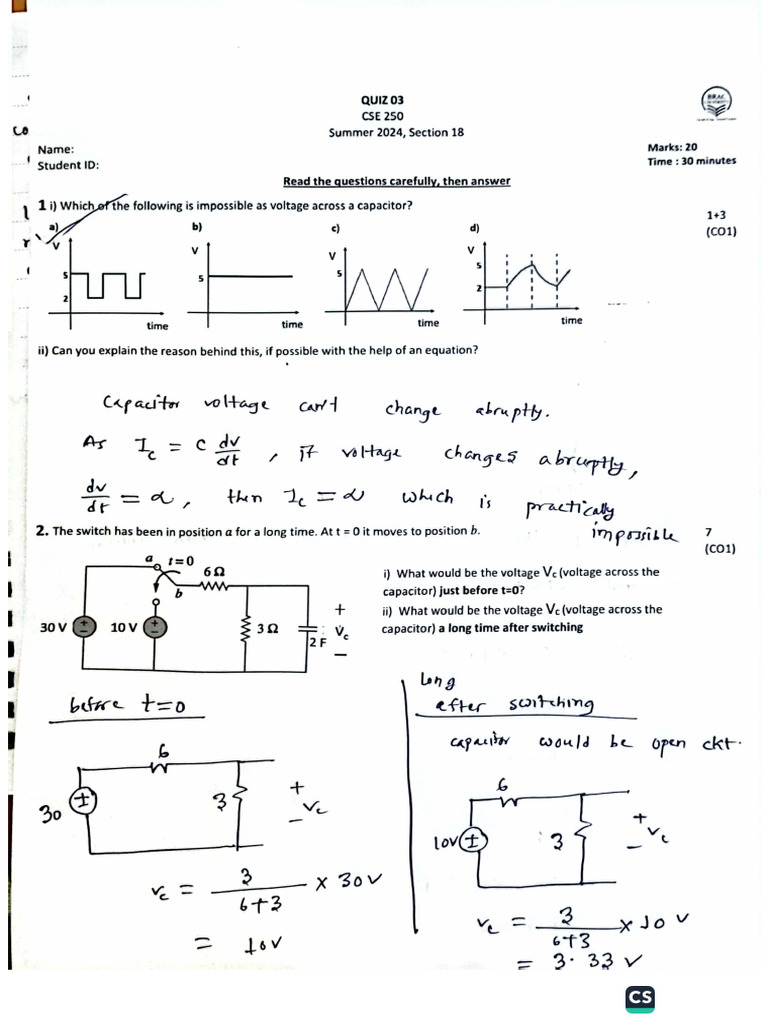 QUIZ 03
CSE 250
Summer 2024, Section 18
BRAC
Name:
Student ID:
Marks: 20
Time : 30 minutes
Read the questions carefully, then answer
1 i) Which of the following is impossible as voltage across a capacitor?
1+3
(CO1)
a) b) c) d)
V V V V
5 2 5 5 5 2
time time time time
ii) Can you explain the reason behind this, if possible with the help of an equation?
Capacitor voltage can't change abruptly.
As I_c = C dv/dt , if voltage changes abruptly,
dv/dt = α, then I_c = α which is practically
impossible
2. The switch has been in position a for a long time. At t = 0 it moves to position b.
7
(CO1)
a t=0
6 Ω
b
30 V 10 V 3 Ω 2 F + Vc −
i) What would be the voltage Vc (voltage across the
capacitor) just before t=0?
ii) What would be the voltage Vc (voltage across the
capacitor) a long time after switching
before t=0
6
30 ± 3 + Vc −
Vc = 3/(6+3) × 30V
= 10V
Long
after switching
capacitor would be open ckt.
6
10V ± 3 + Vc −
Vc = 3/(6+3) × 10 V
= 3.33 V
CS